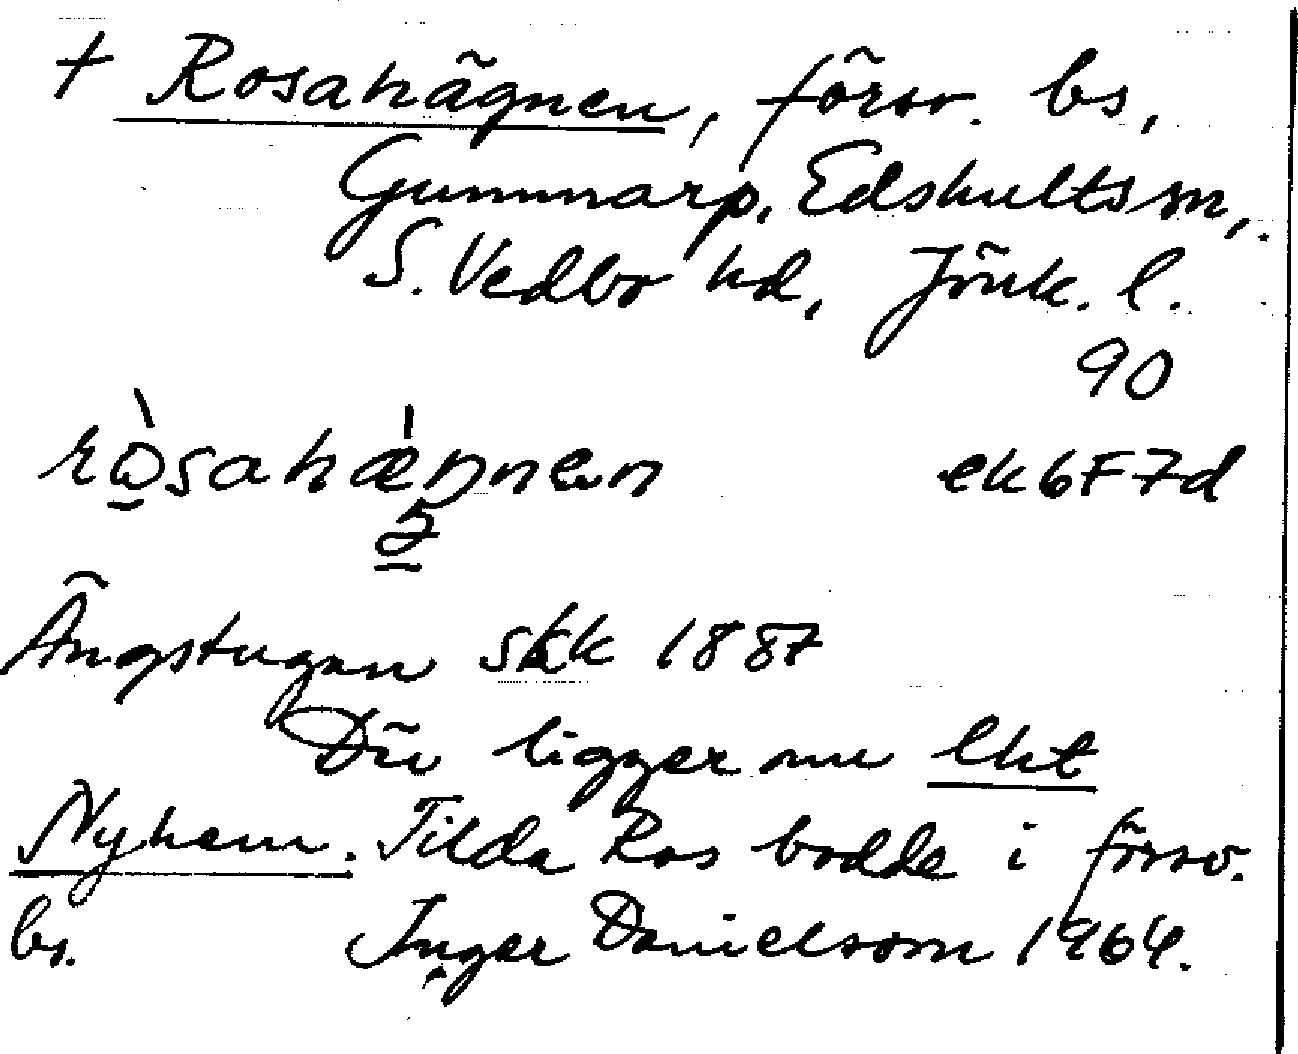 + Rosahägnen, försv. bs,
Gummarp, Edshults sn,
S. Vedbo hd, Jönk. l.
90
ròsahæ̀ŋnen ek 6F7d
Ängstugan skk 1887
Där ligger nu lht
Nyhem. Tilda Ros bodde i försv.
bs. Inger Danielsson 1964.